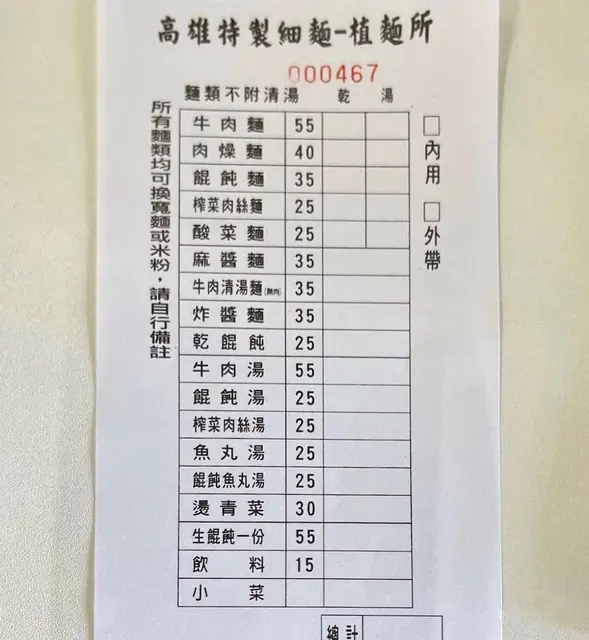 高雄特製細麵-植麵所
000467
麵類不附清湯 乾 湯
所有麵類均可換寬麵或米粉，請自行備註
牛肉麵 55
肉燥麵 40
餛飩麵 35
榨菜肉絲麵 25
酸菜麵 25
麻醬麵 35
牛肉清湯麵(無肉) 35
炸醬麵 35
乾餛飩 25
牛肉湯 55
餛飩湯 25
榨菜肉絲湯 25
魚丸湯 25
餛飩魚丸湯 25
燙青菜 30
生餛飩一份 55
飲料 15
小菜
□內用 □外帶
總計